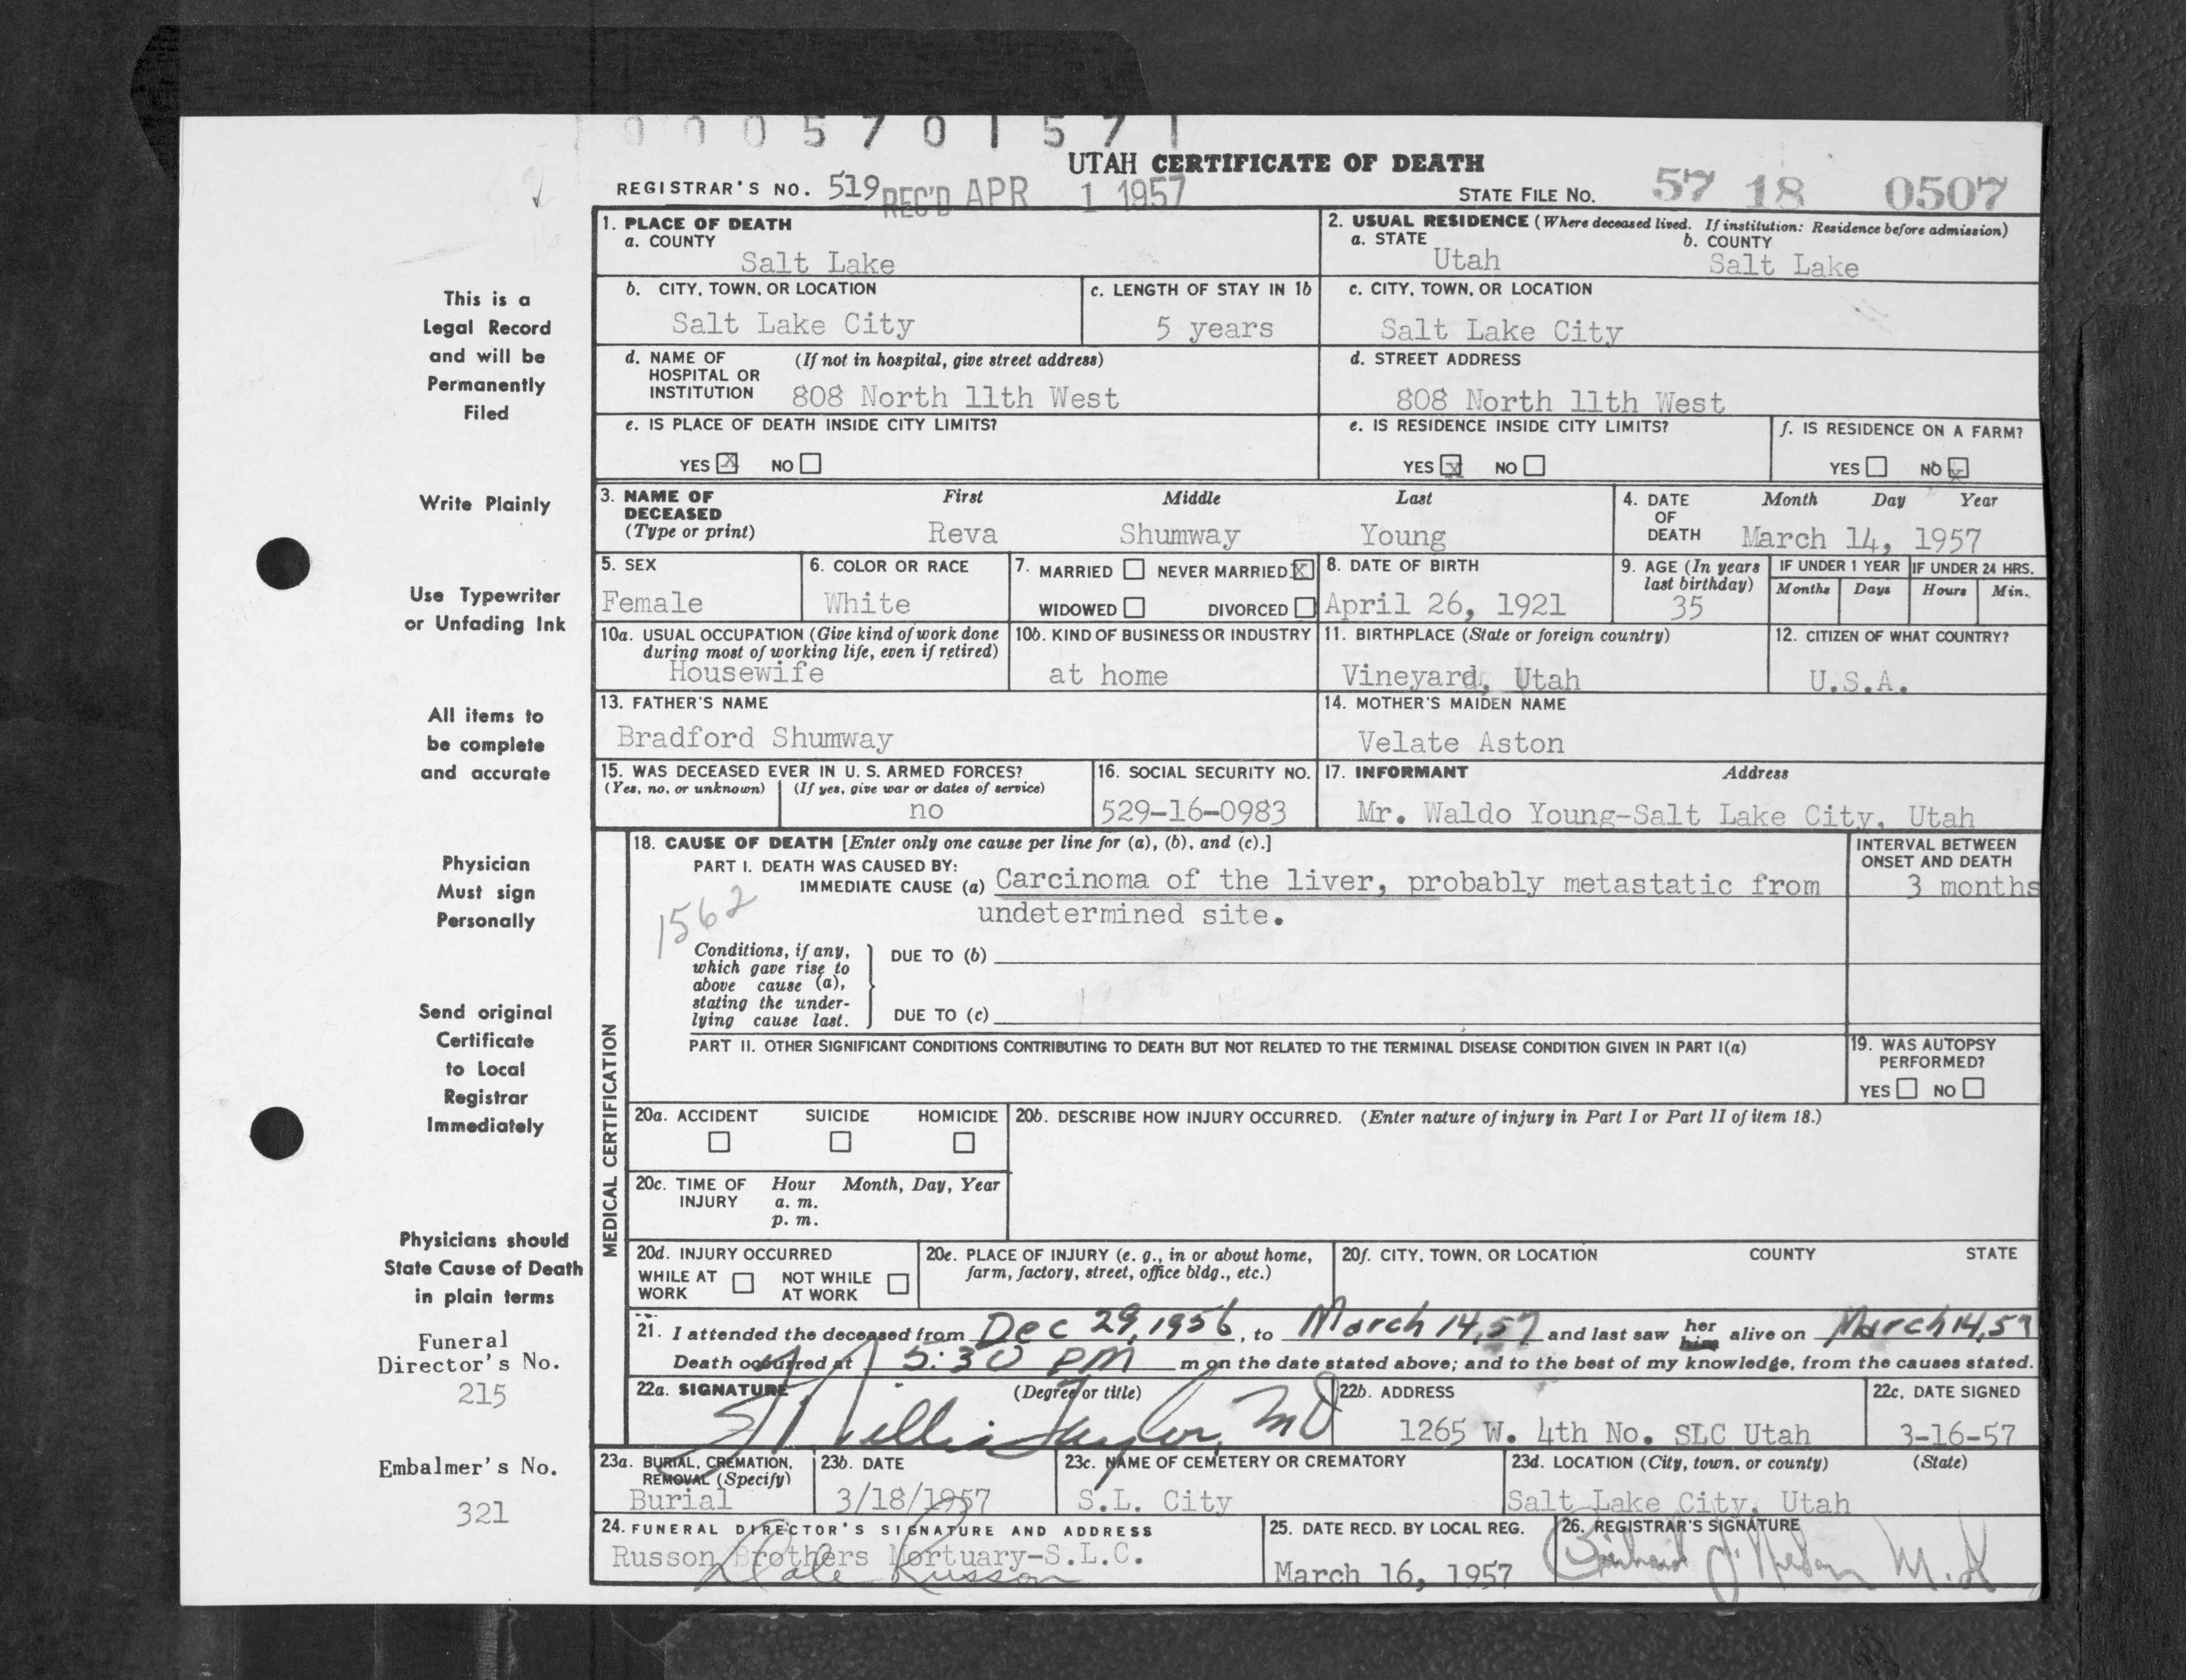 0005701571
UTAH CERTIFICATE OF DEATH
REGISTRAR'S NO. 519 REC'D APR 1 1957 STATE FILE NO. 57 18 0507
1. PLACE OF DEATH
a. COUNTY
Salt Lake
2. USUAL RESIDENCE (Where deceased lived. If institution: Residence before admission)
a. STATE b. COUNTY
Utah Salt Lake
b. CITY, TOWN, OR LOCATION
Salt Lake City
c. LENGTH OF STAY IN 1b
5 years
c. CITY, TOWN, OR LOCATION
Salt Lake City
d. NAME OF (If not in hospital, give street address)
HOSPITAL OR
INSTITUTION 808 North 11th West
d. STREET ADDRESS
808 North 11th West
e. IS PLACE OF DEATH INSIDE CITY LIMITS?
YES X NO
e. IS RESIDENCE INSIDE CITY LIMITS?
YES X NO
f. IS RESIDENCE ON A FARM?
YES NO X
3. NAME OF First Middle Last
DECEASED
(Type or print) Reva Shumway Young
4. DATE Month Day Year
OF
DEATH March 14, 1957
5. SEX
Female
6. COLOR OR RACE
White
7. MARRIED NEVER MARRIED X
WIDOWED DIVORCED
8. DATE OF BIRTH
April 26, 1921
9. AGE (In years
last birthday)
35
IF UNDER 1 YEAR
Months Days
IF UNDER 24 HRS.
Hours Min.
10a. USUAL OCCUPATION (Give kind of work done
during most of working life, even if retired)
Housewife
10b. KIND OF BUSINESS OR INDUSTRY
at home
11. BIRTHPLACE (State or foreign country)
Vineyard, Utah
12. CITIZEN OF WHAT COUNTRY?
U.S.A.
13. FATHER'S NAME
Bradford Shumway
14. MOTHER'S MAIDEN NAME
Velate Aston
15. WAS DECEASED EVER IN U. S. ARMED FORCES?
(Yes, no, or unknown) (If yes, give war or dates of service)
no
16. SOCIAL SECURITY NO.
529-16-0983
17. INFORMANT Address
Mr. Waldo Young-Salt Lake City, Utah
MEDICAL CERTIFICATION
18. CAUSE OF DEATH [Enter only one cause per line for (a), (b), and (c).]
PART I. DEATH WAS CAUSED BY:
IMMEDIATE CAUSE (a) Carcinoma of the liver, probably metastatic from
undetermined site.
INTERVAL BETWEEN
ONSET AND DEATH
3 months
1562
Conditions, if any,
which gave rise to
above cause (a),
stating the under-
lying cause last.
DUE TO (b)
DUE TO (c)
PART II. OTHER SIGNIFICANT CONDITIONS CONTRIBUTING TO DEATH BUT NOT RELATED TO THE TERMINAL DISEASE CONDITION GIVEN IN PART I(a)
19. WAS AUTOPSY
PERFORMED?
YES NO
20a. ACCIDENT SUICIDE HOMICIDE
20b. DESCRIBE HOW INJURY OCCURRED. (Enter nature of injury in Part I or Part II of item 18.)
20c. TIME OF Hour Month, Day, Year
INJURY a. m.
p. m.
20d. INJURY OCCURRED
WHILE AT NOT WHILE
WORK AT WORK
20e. PLACE OF INJURY (e. g., in or about home,
farm, factory, street, office bldg., etc.)
20f. CITY, TOWN, OR LOCATION COUNTY STATE
21. I attended the deceased from Dec 29, 1956, to March 14, 57 and last saw her him alive on March 14, 57
Death occurred at 5:30 PM m on the date stated above; and to the best of my knowledge, from the causes stated.
22a. SIGNATURE (Degree or title)
Taylor, MD
22b. ADDRESS
1265 W. 4th No. SLC Utah
22c. DATE SIGNED
3-16-57
23a. BURIAL, CREMATION,
REMOVAL (Specify)
Burial
23b. DATE
3/18/1957
23c. NAME OF CEMETERY OR CREMATORY
S.L. City
23d. LOCATION (City, town, or county) (State)
Salt Lake City, Utah
24. FUNERAL DIRECTOR'S SIGNATURE AND ADDRESS
Russon Brothers Mortuary-S.L.C.
Dale Russon
25. DATE RECD. BY LOCAL REG.
March 16, 1957
26. REGISTRAR'S SIGNATURE
M.D
This is a
Legal Record
and will be
Permanently
Filed
Write Plainly
Use Typewriter
or Unfading Ink
All items to
be complete
and accurate
Physician
Must sign
Personally
Send original
Certificate
to Local
Registrar
Immediately
Physicians should
State Cause of Death
in plain terms
Funeral
Director's No.
215
Embalmer's No.
321